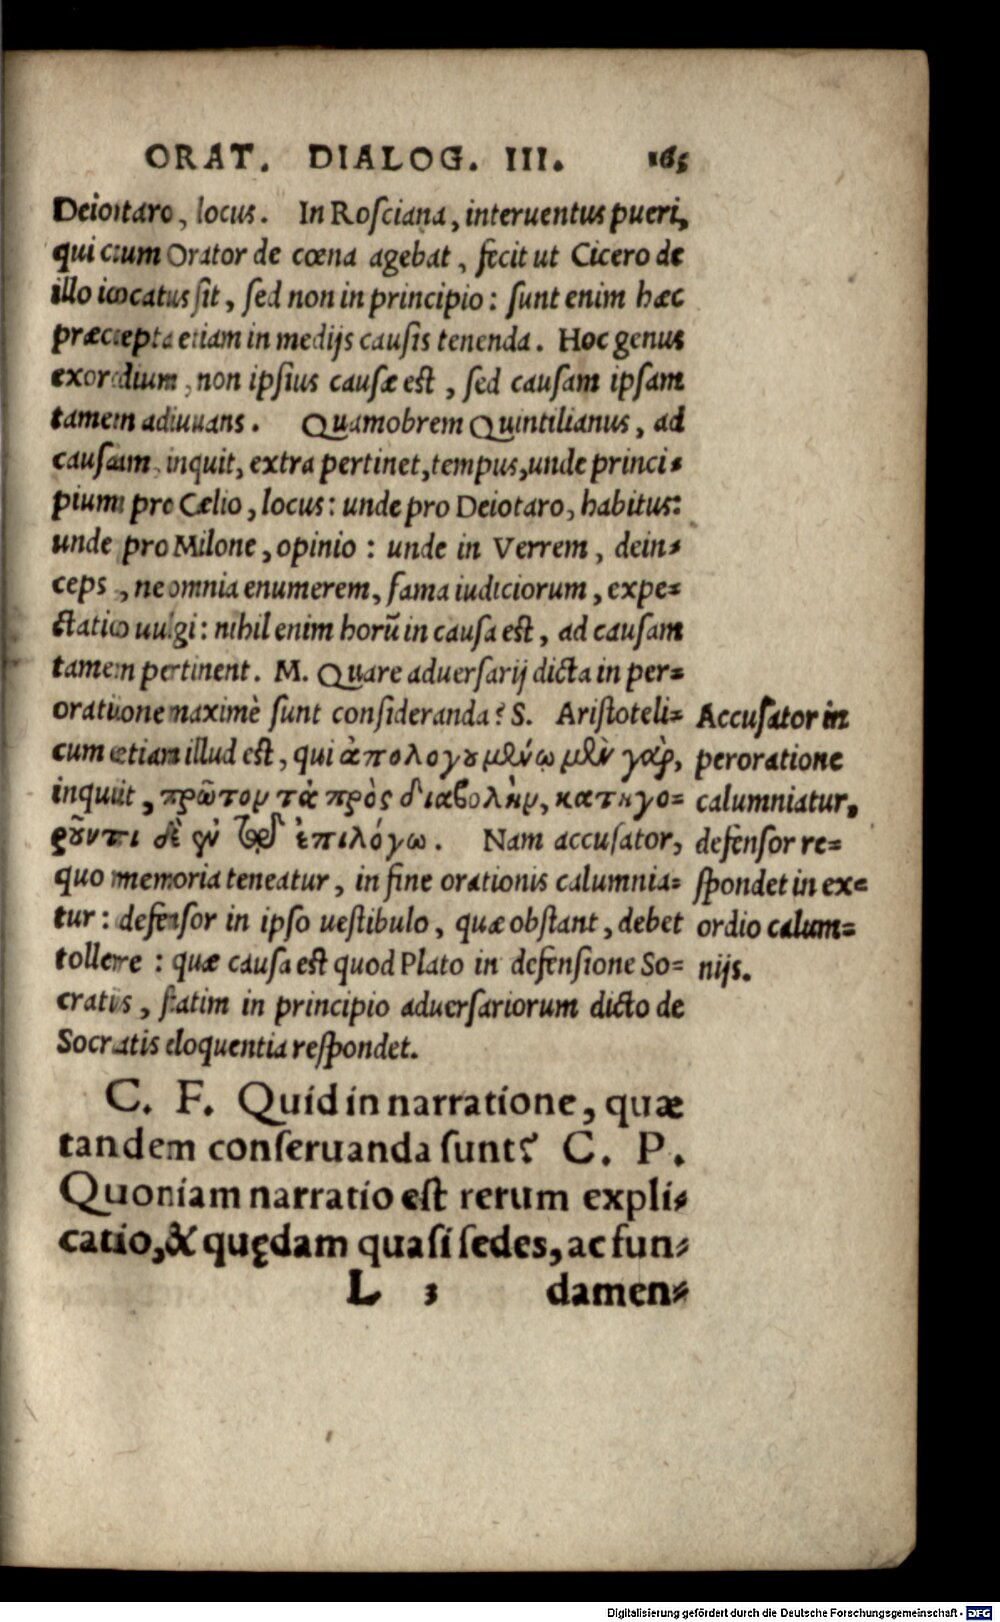 ORAT. DIALOG. III. 165
Deiotaro, locus. In Rosciana, interuentus pueri,
qui cum Orator de cœna agebat, fecit ut Cicero de
illo iocatus sit, sed non in principio: sunt enim hæc
præcepta etiam in medijs causis tenenda. Hoc genus
exordium, non ipsius causæ est, sed causam ipsam
tamen adiuuans. Quamobrem Quintilianus, ad
causam, inquit, extra pertinet, tempus, unde princi-
pium pro Cælio, locus: unde pro Deiotaro, habitus:
unde pro Milone, opinio: unde in Verrem, dein-
ceps, ne omnia enumerem, fama iudiciorum, expe-
ctatio uulgi: nihil enim horū in causa est, ad causam
tamen pertinent. M. Quare aduersarij dicta in per-
oratione maximè sunt consideranda? S. Aristoteli-
cum etiam illud est, qui ἀπολογουμένῳ μὲν γὰρ,
inquit, πρῶτον τὰ πρὸς διαβολὴν, κατηγο-
ροῦντι δὲ ἐν τῷ ἐπιλόγω. Nam accusator,
quo memoria teneatur, in fine orationis calumnia-
tur: defensor in ipso uestibulo, quæ obstant, debet
tollere: quæ causa est quod Plato in defensione So-
cratis, statim in principio aduersariorum dicto de
Socratis eloquentia respondet.
Accusator in
peroratione
calumniatur,
defensor re-
spondet in ex-
ordio calum-
nijs.
C. F. Quid in narratione, quæ
tandem conseruanda sunt? C. P.
Quoniam narratio est rerum expli-
catio, & quędam quasi sedes, ac fun-
L 3 damen-
Digitalisierung gefördert durch die Deutsche Forschungsgemeinschaft - DFG